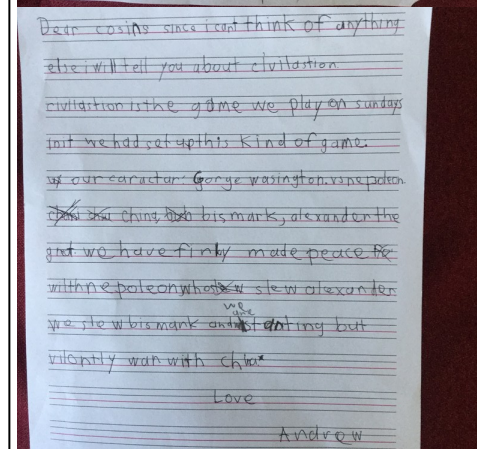 Dear cosins since i cant think of anything
else i will tell you about civilastion
civilastion is the game we play on sundays
init we had set up this kind of game:
our caractar: Gorge wasington. vs nepoleon
china, bismark, alexander the
gret we have finly made peace
with nepoleon whos slew alexander
we slew bismark and we are anting but
vilantly war with china
Love
Andrew